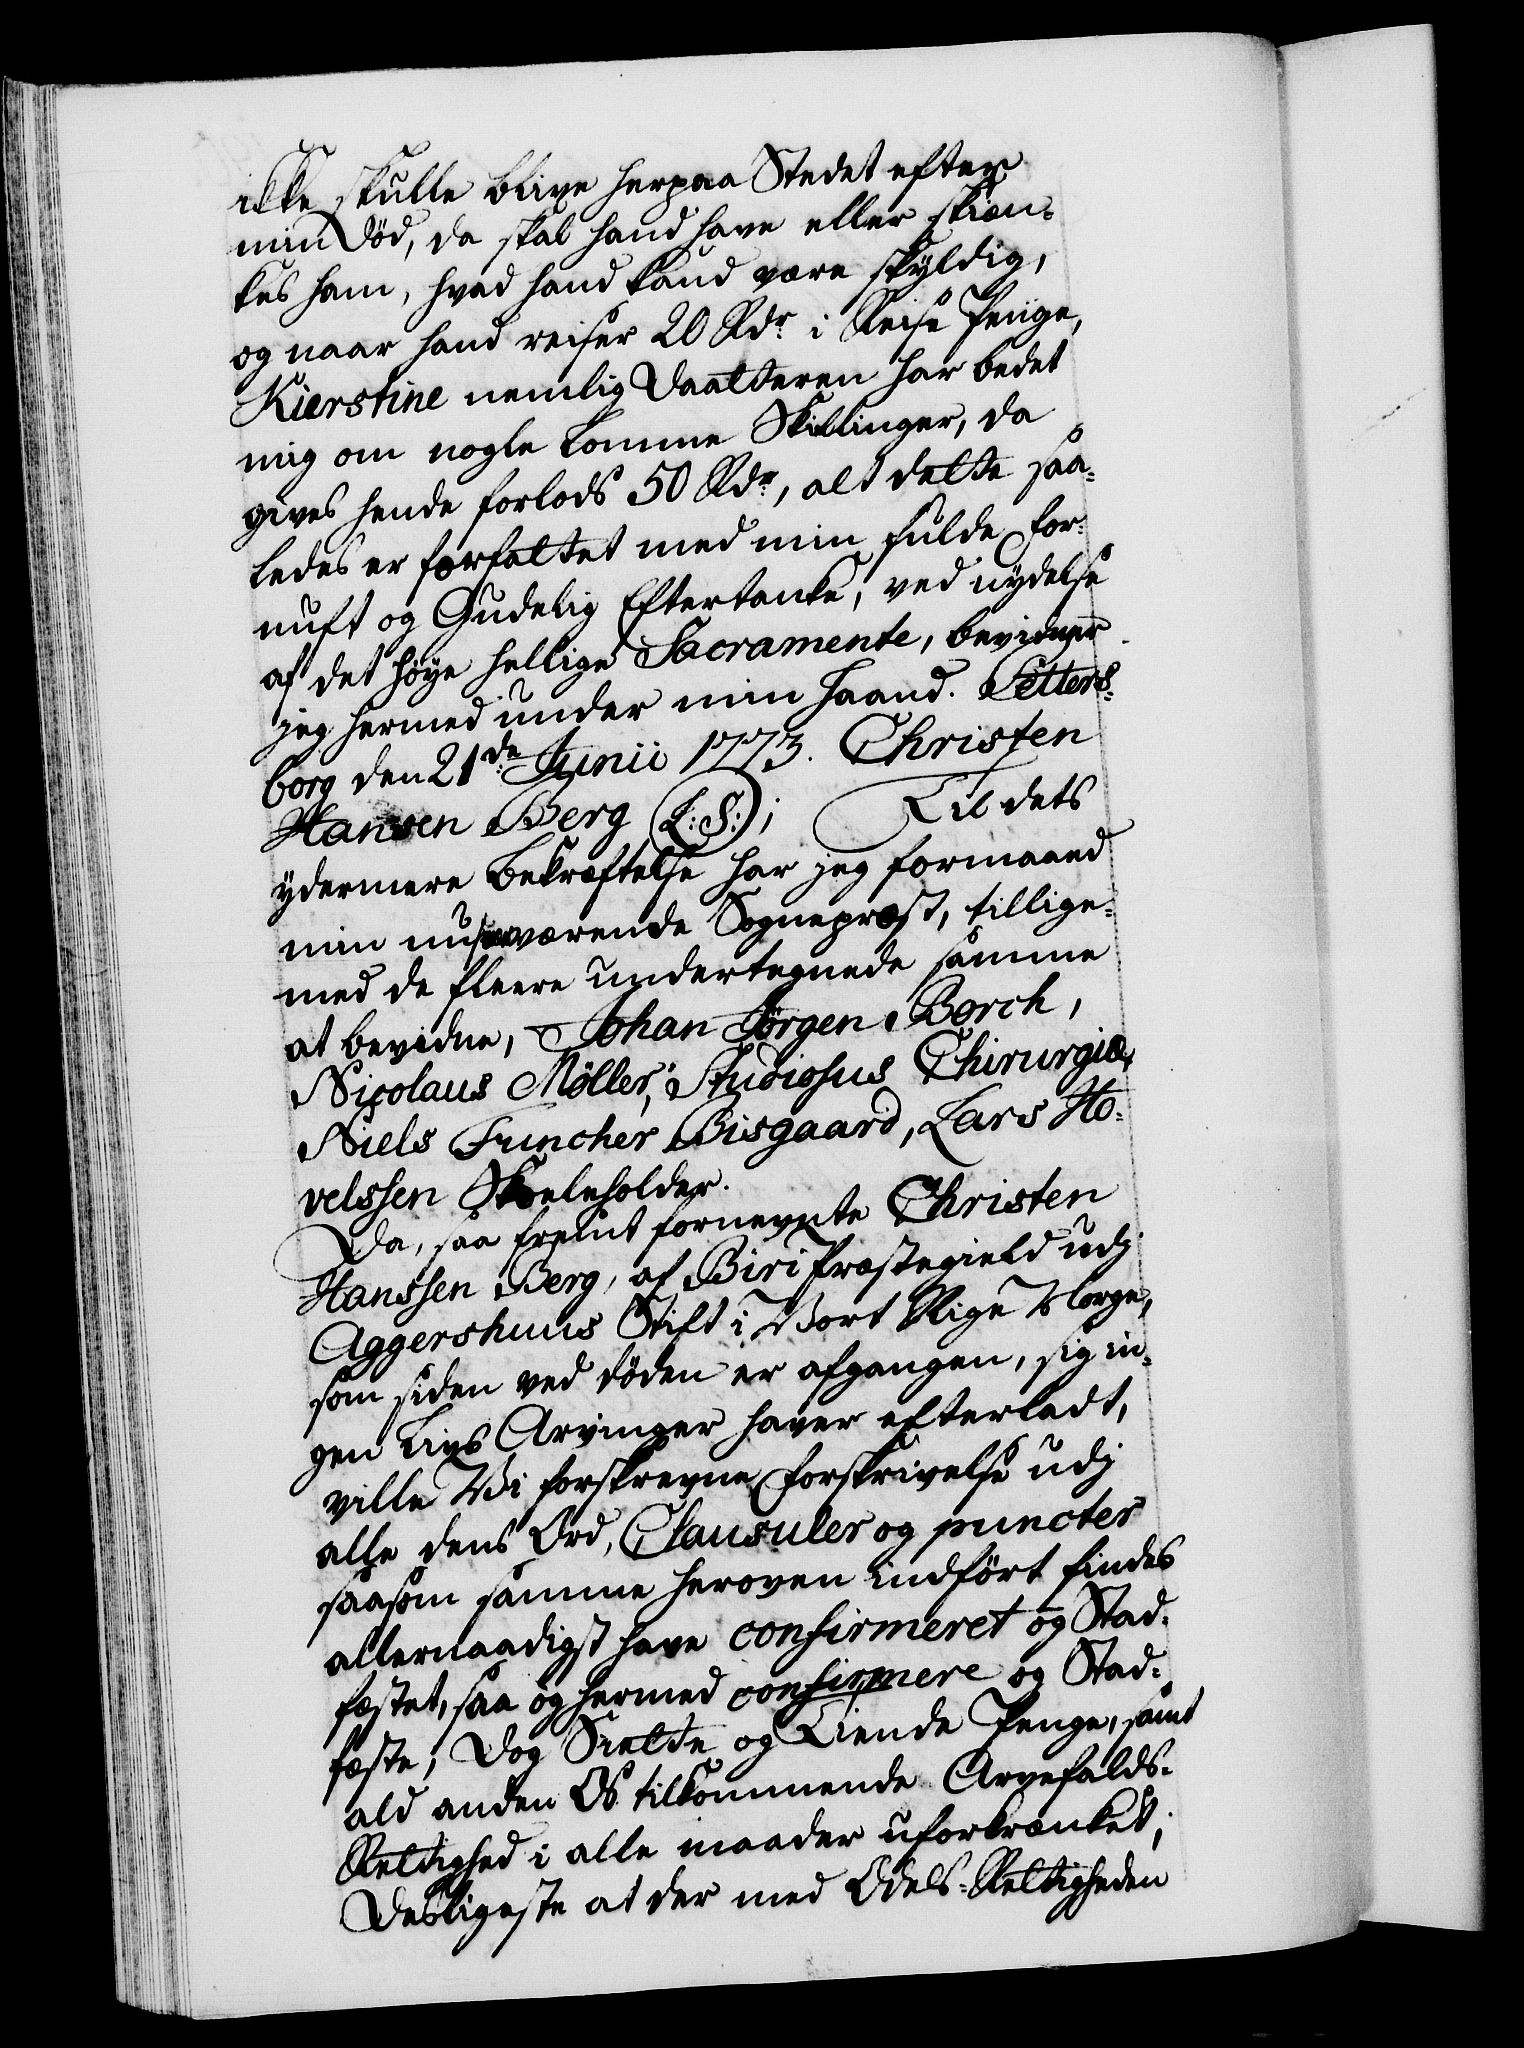 ikke skulle blive herpaa Stedet efter
min Død, da skal hand have eller skien-
kes ham, hvad hand kand være skyldig,
og naar hand reiser 20 Rdr. i Reise Penge,
Kierstine nemlig Daatteren har bedet
mig om nogle Lomme Skillinger, da
gives hende forlods 50 Rdr, alt dette saa-
ledes er forfattet med min fulde For-
nuft og Gudelig Eftertanke, ved nydelse
af det høye hellige Sacramente, bevidner
jeg hermed under min Haand. Petters-
borg den 21de Junii 1773. Christen
Hansen Berg (L:S:); Til dets
ydermere Bekræftelse har jeg formaaed
min nuværende Sognepræst, tillige-
med de fleere undertegnede samme
at bevidne, Johan Jørgen Borch,
Nicolaus Møller, Studiosus Chirurgiæ,
Niels Funcher Bisgaard, Lars Ho-
velssen Skoleholder.
Da, saa fremt fornevnte Christen
Hanssen Berg, af Biri Præstegield udj
Aggershuus Stift i Vort Rige Norge,
som siden ved døden er afgangen, sig in-
gen Livs Arvinger haver efterladt,
ville Vi forskrevne Forskrivelse udj
alle dens Ord, Clausuler og puncter
saasom samme heroven indført findes
allernaadigst have confirmeret og Stad-
fæstet, saa og hermed confirmere og Stad-
fæste; Dog Siette og Tiende Penge, samt
ald anden Os tilkommende Arvefalds-
Rettighed i alle maader uforkrænket;
Desligeste at der med Odels-Rettigheden